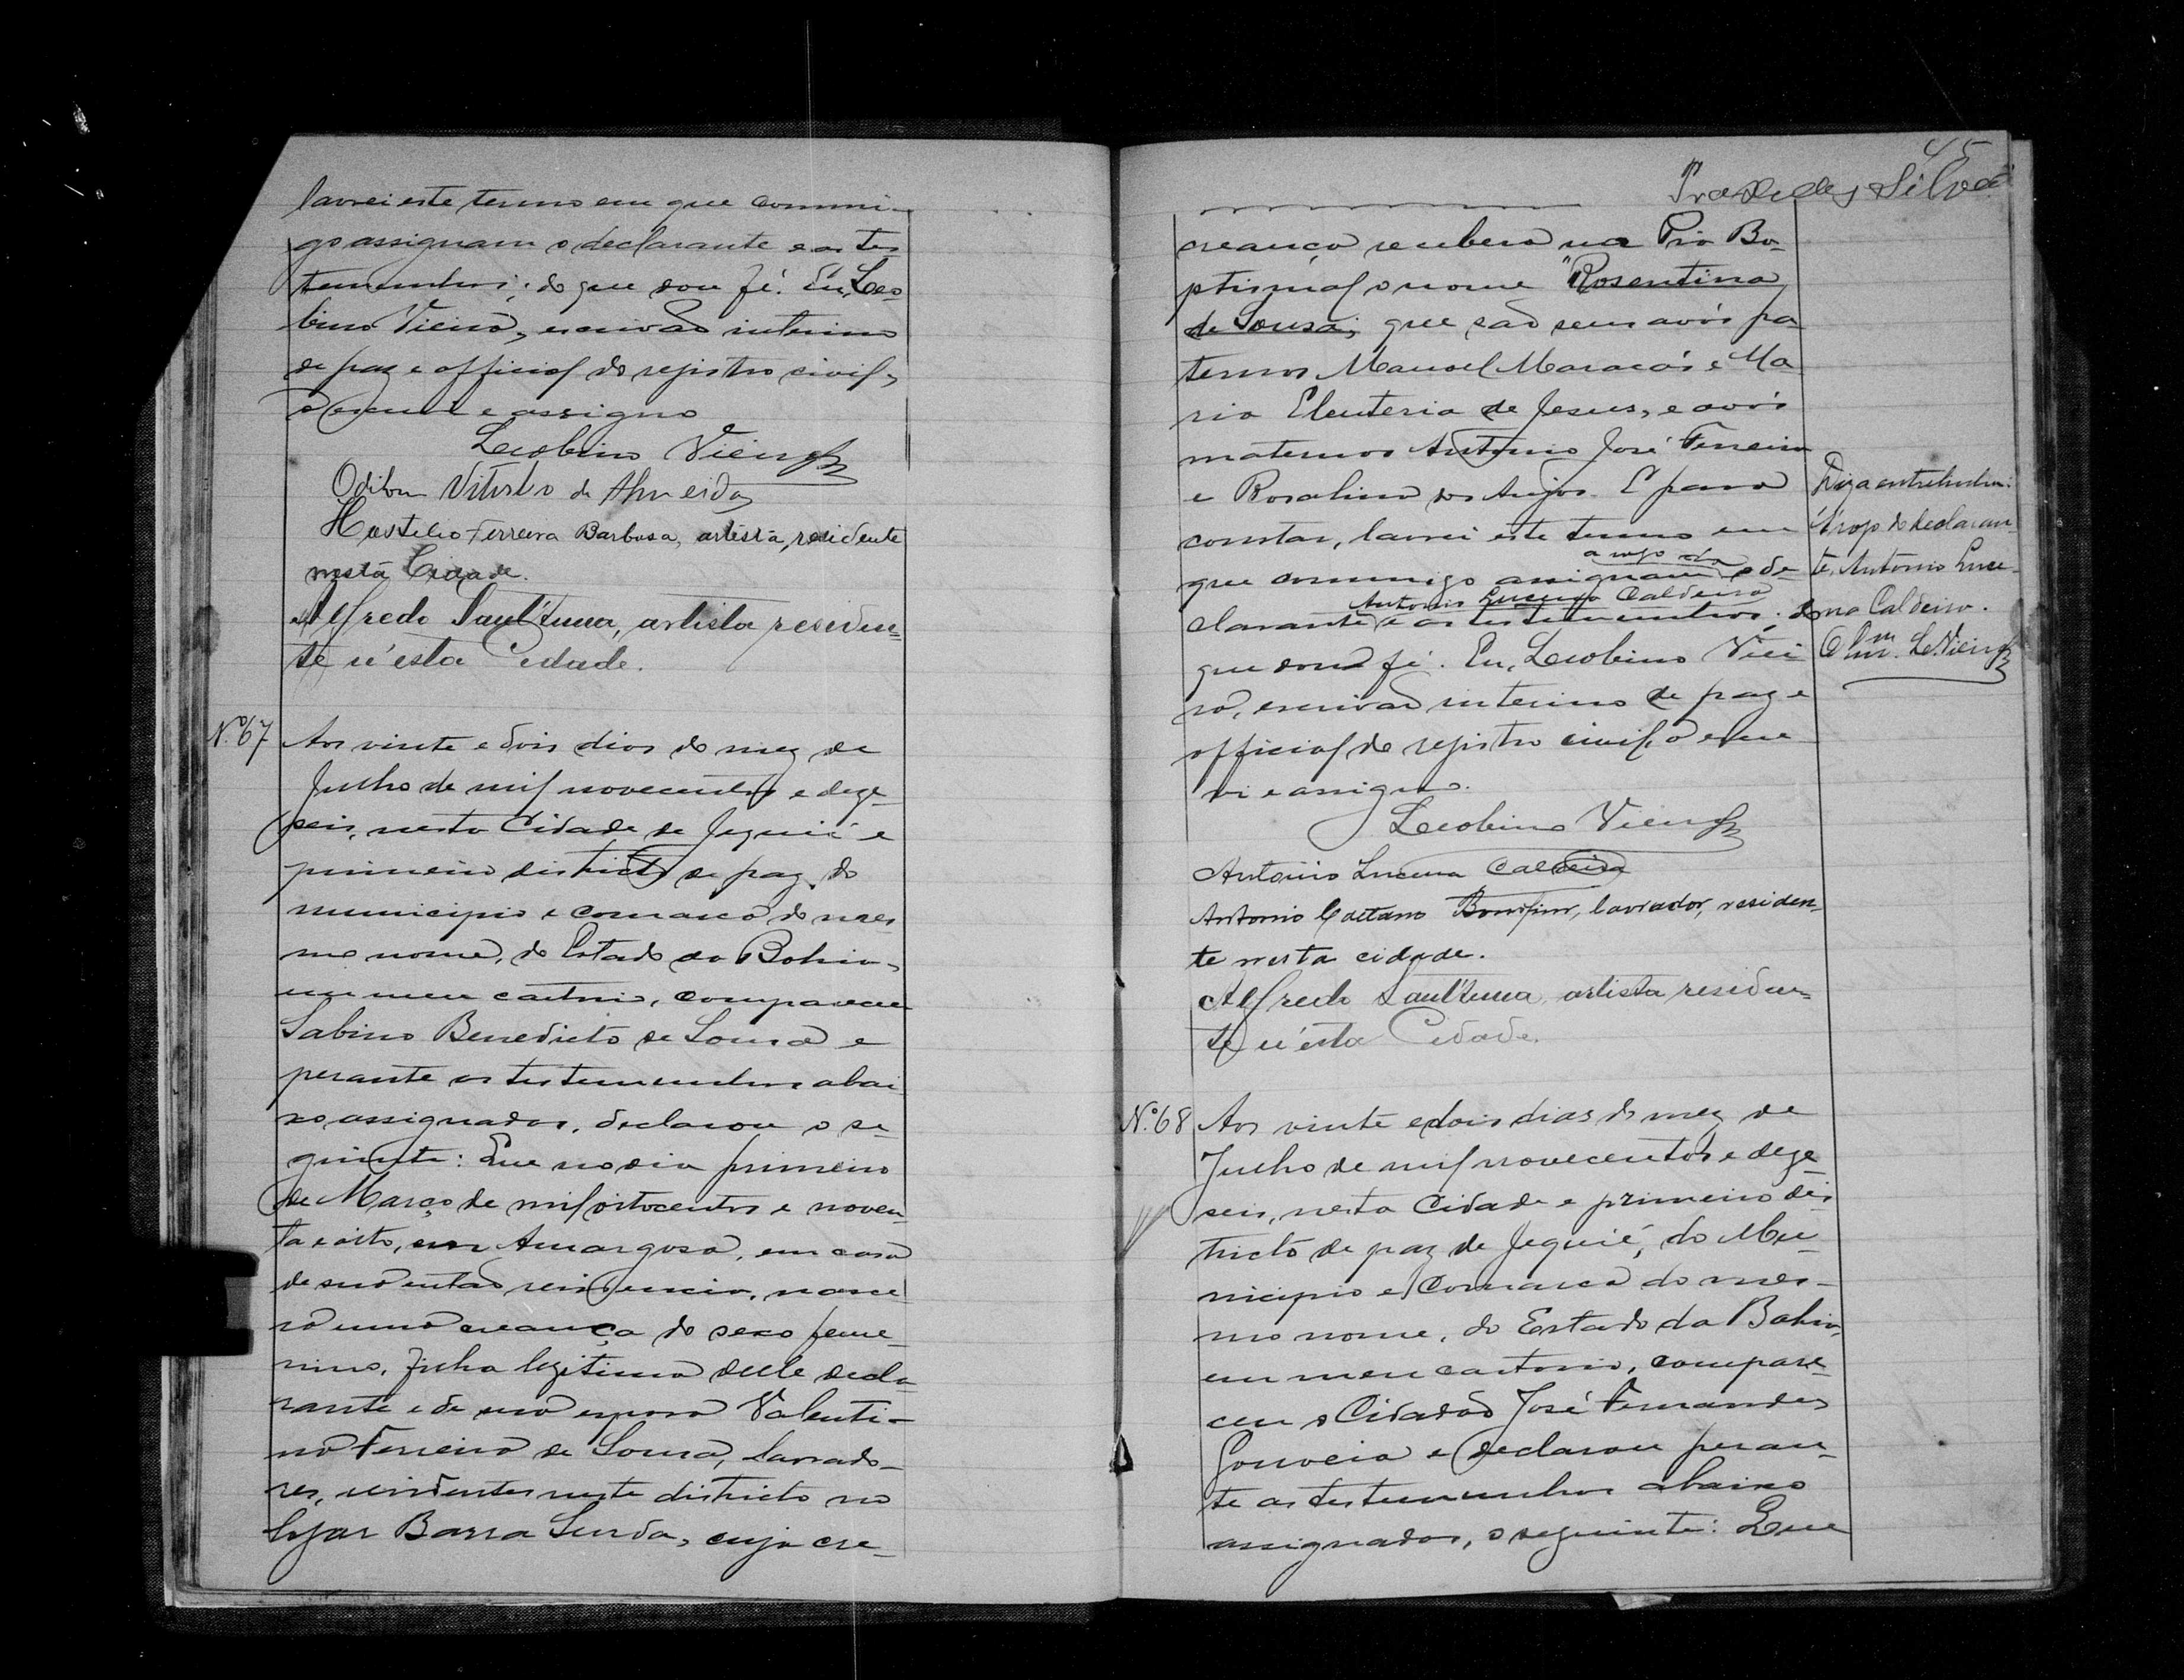 lavrei este termo em que commi-
go assignam o declarante e as tes-
temunhas; do que dou fé. Eu, Leo-
bino Vieira, escrivão interino
de paz e official do registro civil,
o escrevi e assigno
Leobino Vieira
Odilon Vitorbo de Almeida
Hostilio Ferreira Barbosa, artista, residente
nesta Cidade.
Alfredo Sant'Anna, artista residen-
te n'esta Cidade.
Nº 67
Aos vinte e dois dias do mez de
Julho de mil novecentos e deze-
seis, nesta Cidade de Jequié e
primeiro districto de paz, do
municipio e comarca do mes-
mo nome, do Estado da Bahia,
em meu cartorio, compareceu
Sabino Benedicto de Sousa e
perante as testemunhas abai-
xo assignadas, declarou o se-
guinte: Que no dia primeiro
de Março de mil oitocentos e noven-
ta e oito, em Amargosa, em casa
de sua então residencia, nasce-
ra uma creança do sexo femi-
nino, filha legitima delle decla-
rante e de sua esposa Valenti-
na Ferreira de Sousa, lavrado-
res, residentes neste districto no
logar Barra Surda, cuja cre-
45
Praxedes Silva
creança recebera na Pia Ba-
ptismal o nome "Rosentina
de Sousa; que são seus avós pa
ternos Manoel Maracás e Ma
ria Eleuteria de Jesus, e avós
maternos Antonio José Ferreira
e Rosalina dos Anjos. E para
constar, lavrei este termo em
a rogo do
que commigo assignam o de-
Antonio Lucena Caldeira
clarante e as testemunhas; do
que dou fé. Eu, Leobino Viei
ra, escrivão interino de paz e
official do registro civil, o escre
vi e assigno.
Leobino Vieira
Antonio Lucena Caldeira
Antonio Caetano Bomfim, lavrador, residen-
te nesta cidade.
Alfredo Sant'Anna, artista residen-
te n'esta Cidade.
Diga entrelinha:
A rogo do declaran-
te, Antonio Luce-
na Caldeira.
L. Vieira
Nº 68
Aos vinte e dois dias do mez de
Julho de mil novecentos e deze-
seis, nesta Cidade e primeiro dis
tricto de paz de Jequié, do Mu-
nicipio e Comarca do mes-
mo nome, do Estado da Bahia,
em meu cartorio, compare-
ceu o Cidadão José Fernandes
Gouveia e declarou peran-
te as testemunhas abaixo
assignadas, o seguinte: Que